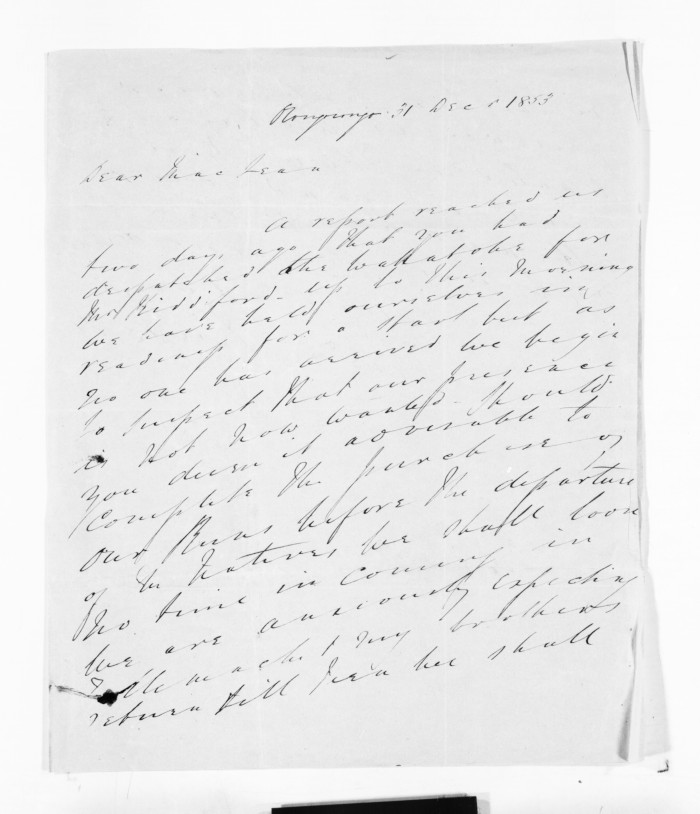 31 Decr 1853
Dear MacLean
A report reached us
two days ago that you had
despatched the for
Mr Riddiford. up to this morning
we have held ourselves in
readiness for a start but as
no one has arrived we begin
to suspect that our presence
is not now wanted. Should
you deem it advisable to
Complete the purchase of
our Runs before the departure
of the Natives we shall loose
no time in coming in
We are anxiously expecting
& my brothers
return till then we shall